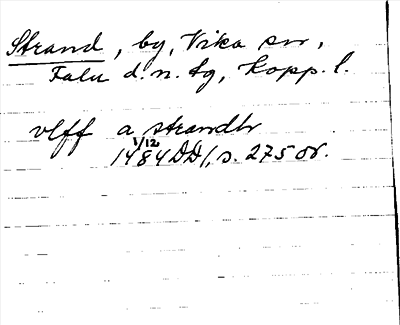 Strand, by, Vika sn,
Falu d.n. tg, Kopp. l.
vlff a strandh
1/12
1484 DD1, s. 275 or.